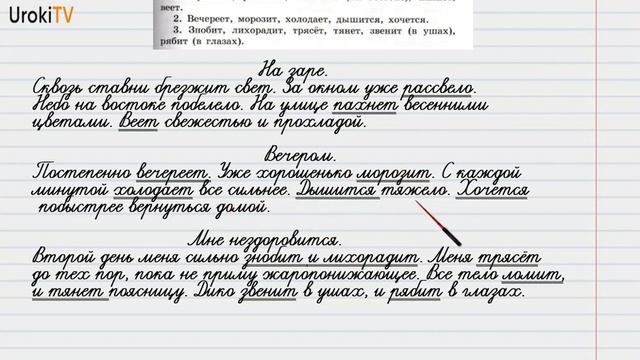 UrokiTV
веет.
2. Вечереет, морозит, холодает, дышится, хочется.
3. Знобит, лихорадит, трясёт, тянет, звенит (в ушах),
рябит (в глазах).
На заре.
Сквозь ставни брезжит свет. За окном уже рассвело.
Небо на востоке побелело. На улице пахнет весенними
цветами. Веет свежестью и прохладой.
Вечером.
Постепенно вечереет. Уже хорошенько морозит. С каждой
минутой холодает все сильнее. Дышится тяжело. Хочется
побыстрее вернуться домой.
Мне нездоровится.
Второй день меня сильно знобит и лихорадит. Меня трясёт
до тех пор, пока не приму жаропонижающее. Все тело ломит,
и тянет поясницу. Дико звенит в ушах, и рябит в глазах.